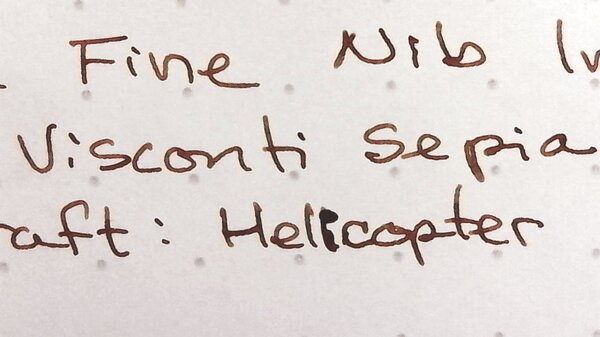 Fine Nib In
Visconti Sepia
raft: Helicopter